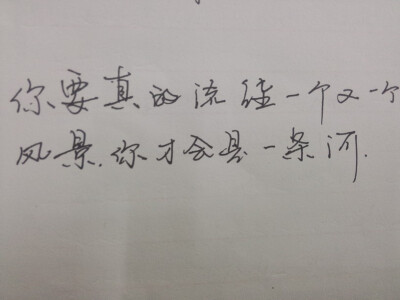 你要真的流经一个又一个
风景.你才会是一条河.